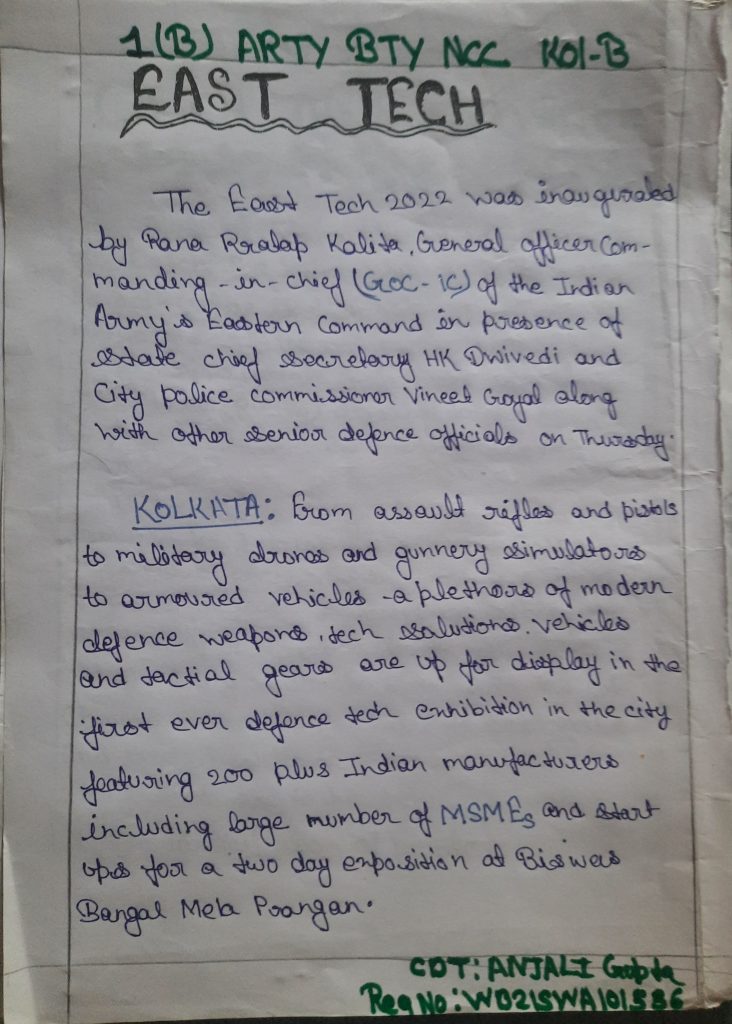 1(B) ARTY BTY NCC KOL-B
EAST TECH
The East Tech 2022 was inaugurated
by Rana Pralap Kalita, General officer Com-
manding - in - chief (GOC - ic) of the Indian
Army's Eastern Command in presence of
state chief secretary HK Dwivedi and
City police commissioner Vineet Goyal along
with other senior defence officials on Thursday.
KOLKATA: From assault rifles and pistols
to military drones and gunnery simulators
to armoured vehicles - a plethora of modern
defence weapons, tech salutions, vehicles
and tactial gears are up for display in the
first ever defence tech enhibition in the city
featuring 200 plus Indian manufacturers
including large number of MSMEs and start
ups for a two day enposition at Biswas
Bangal Mela Prangan.
CDT: ANJALI Gupta
Reg No: WB21SWA101536